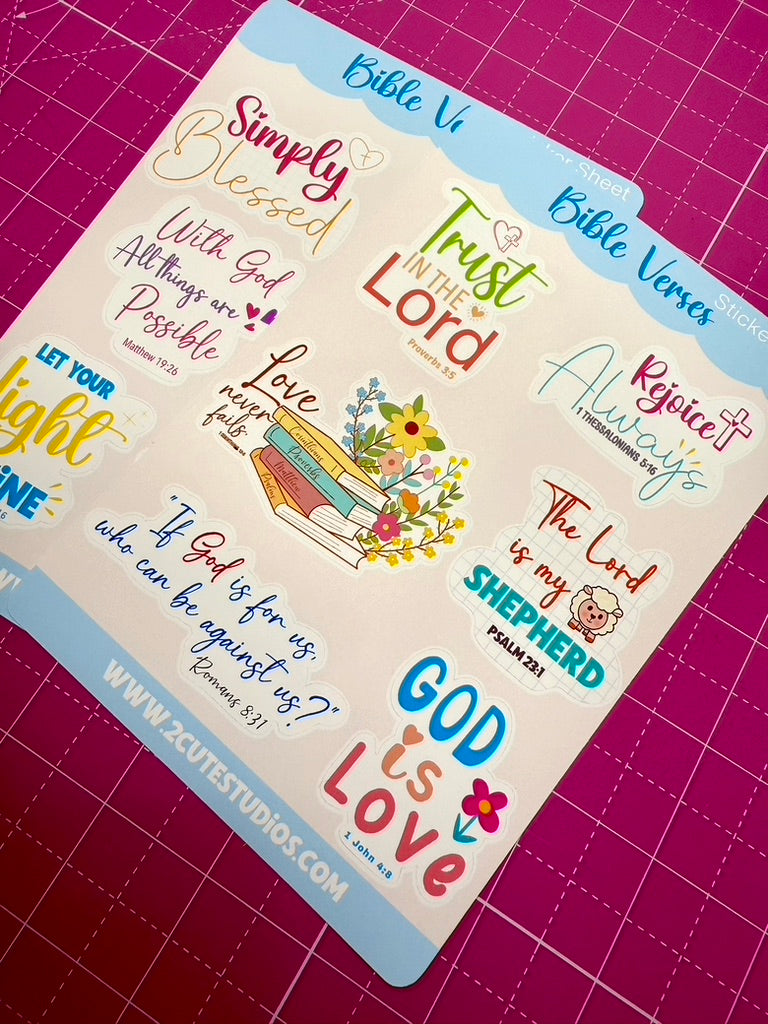 Bible Ve
Sheet
Bible Verses
Sticke
Simply
Blessed
With God
All things are
Possible
Matthew 19:26
Trust
IN THE
Lord
Proverbs 3:5
Rejoice
Always
1 THESSALONIANS 5:16
LET YOUR
light
INE
Love
never
fails.
Corinthians
Proverbs
Matthew
Psalms
The Lord
is my
SHEPHERD
PSALM 23:1
"If God is for us,
who can be against us?"
Romans 8:31
GOD
is
LOVe
1 John 4:8
WWW.2CUTESTUDIOS.COM